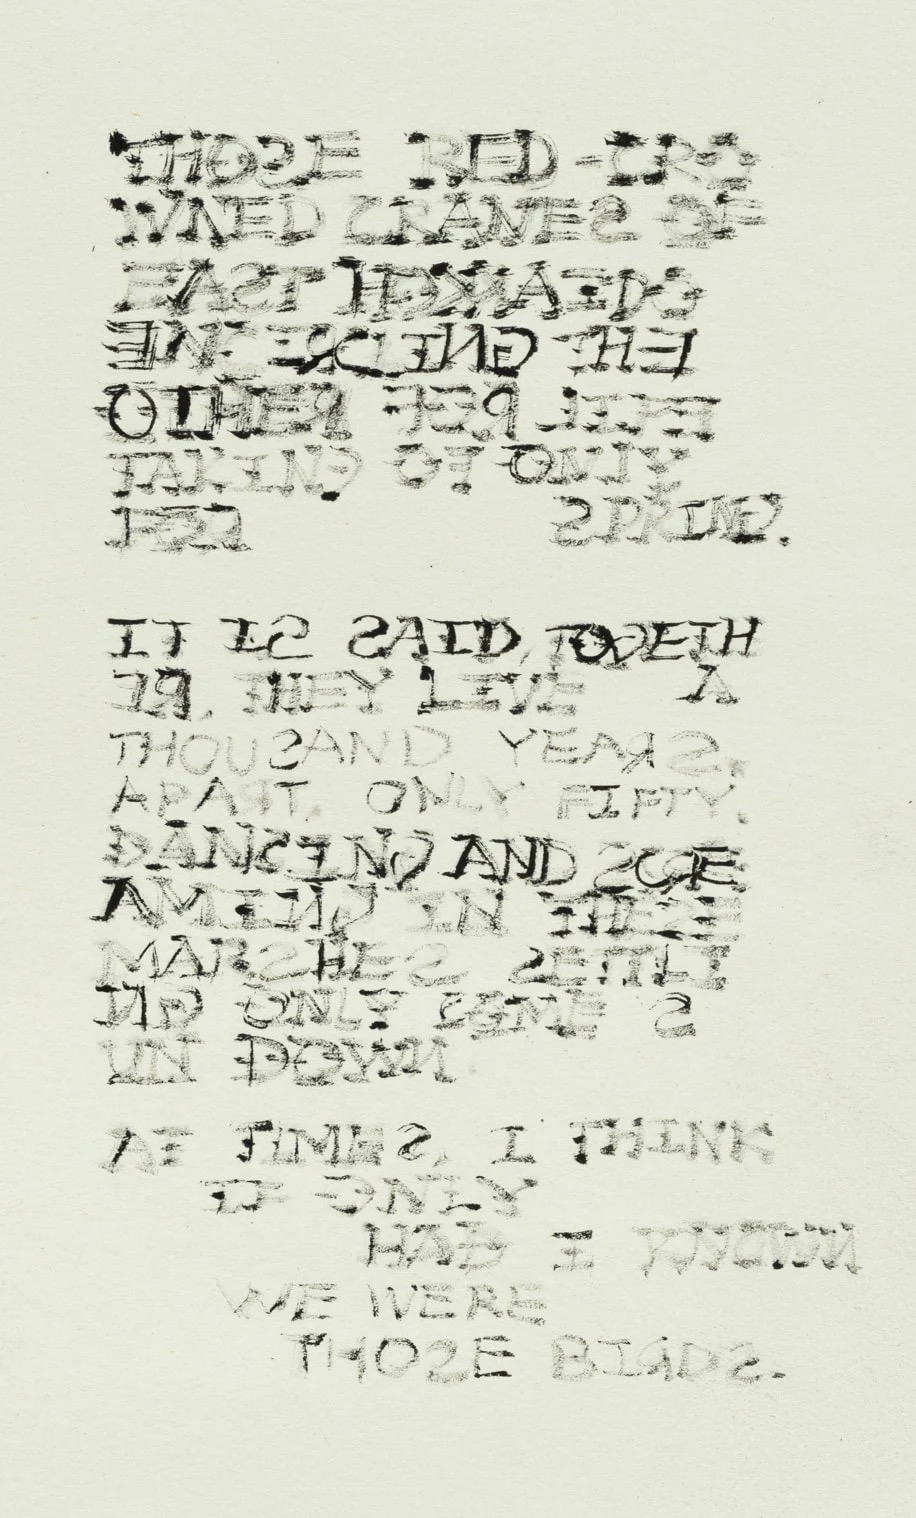 THOSE RED-CRO
WNED CRANES OF
EAST HOKKAIDO
ENCIRCLING THE
OTHER FOR LIFE
TAKING OF ONLY
SPRING.
IT IS SAID, TOGETH
ER, THEY LIVE A
THOUSAND YEARS.
APART, ONLY FIFTY.
DANCING AND SCRE
AMING IN THESE
MARSHES SETTLI
NG ONLY SOME S
UN DOWN.
AT TIMES, I THINK
IF ONLY
HAD I KNOWN
WE WERE
THOSE BIRDS.